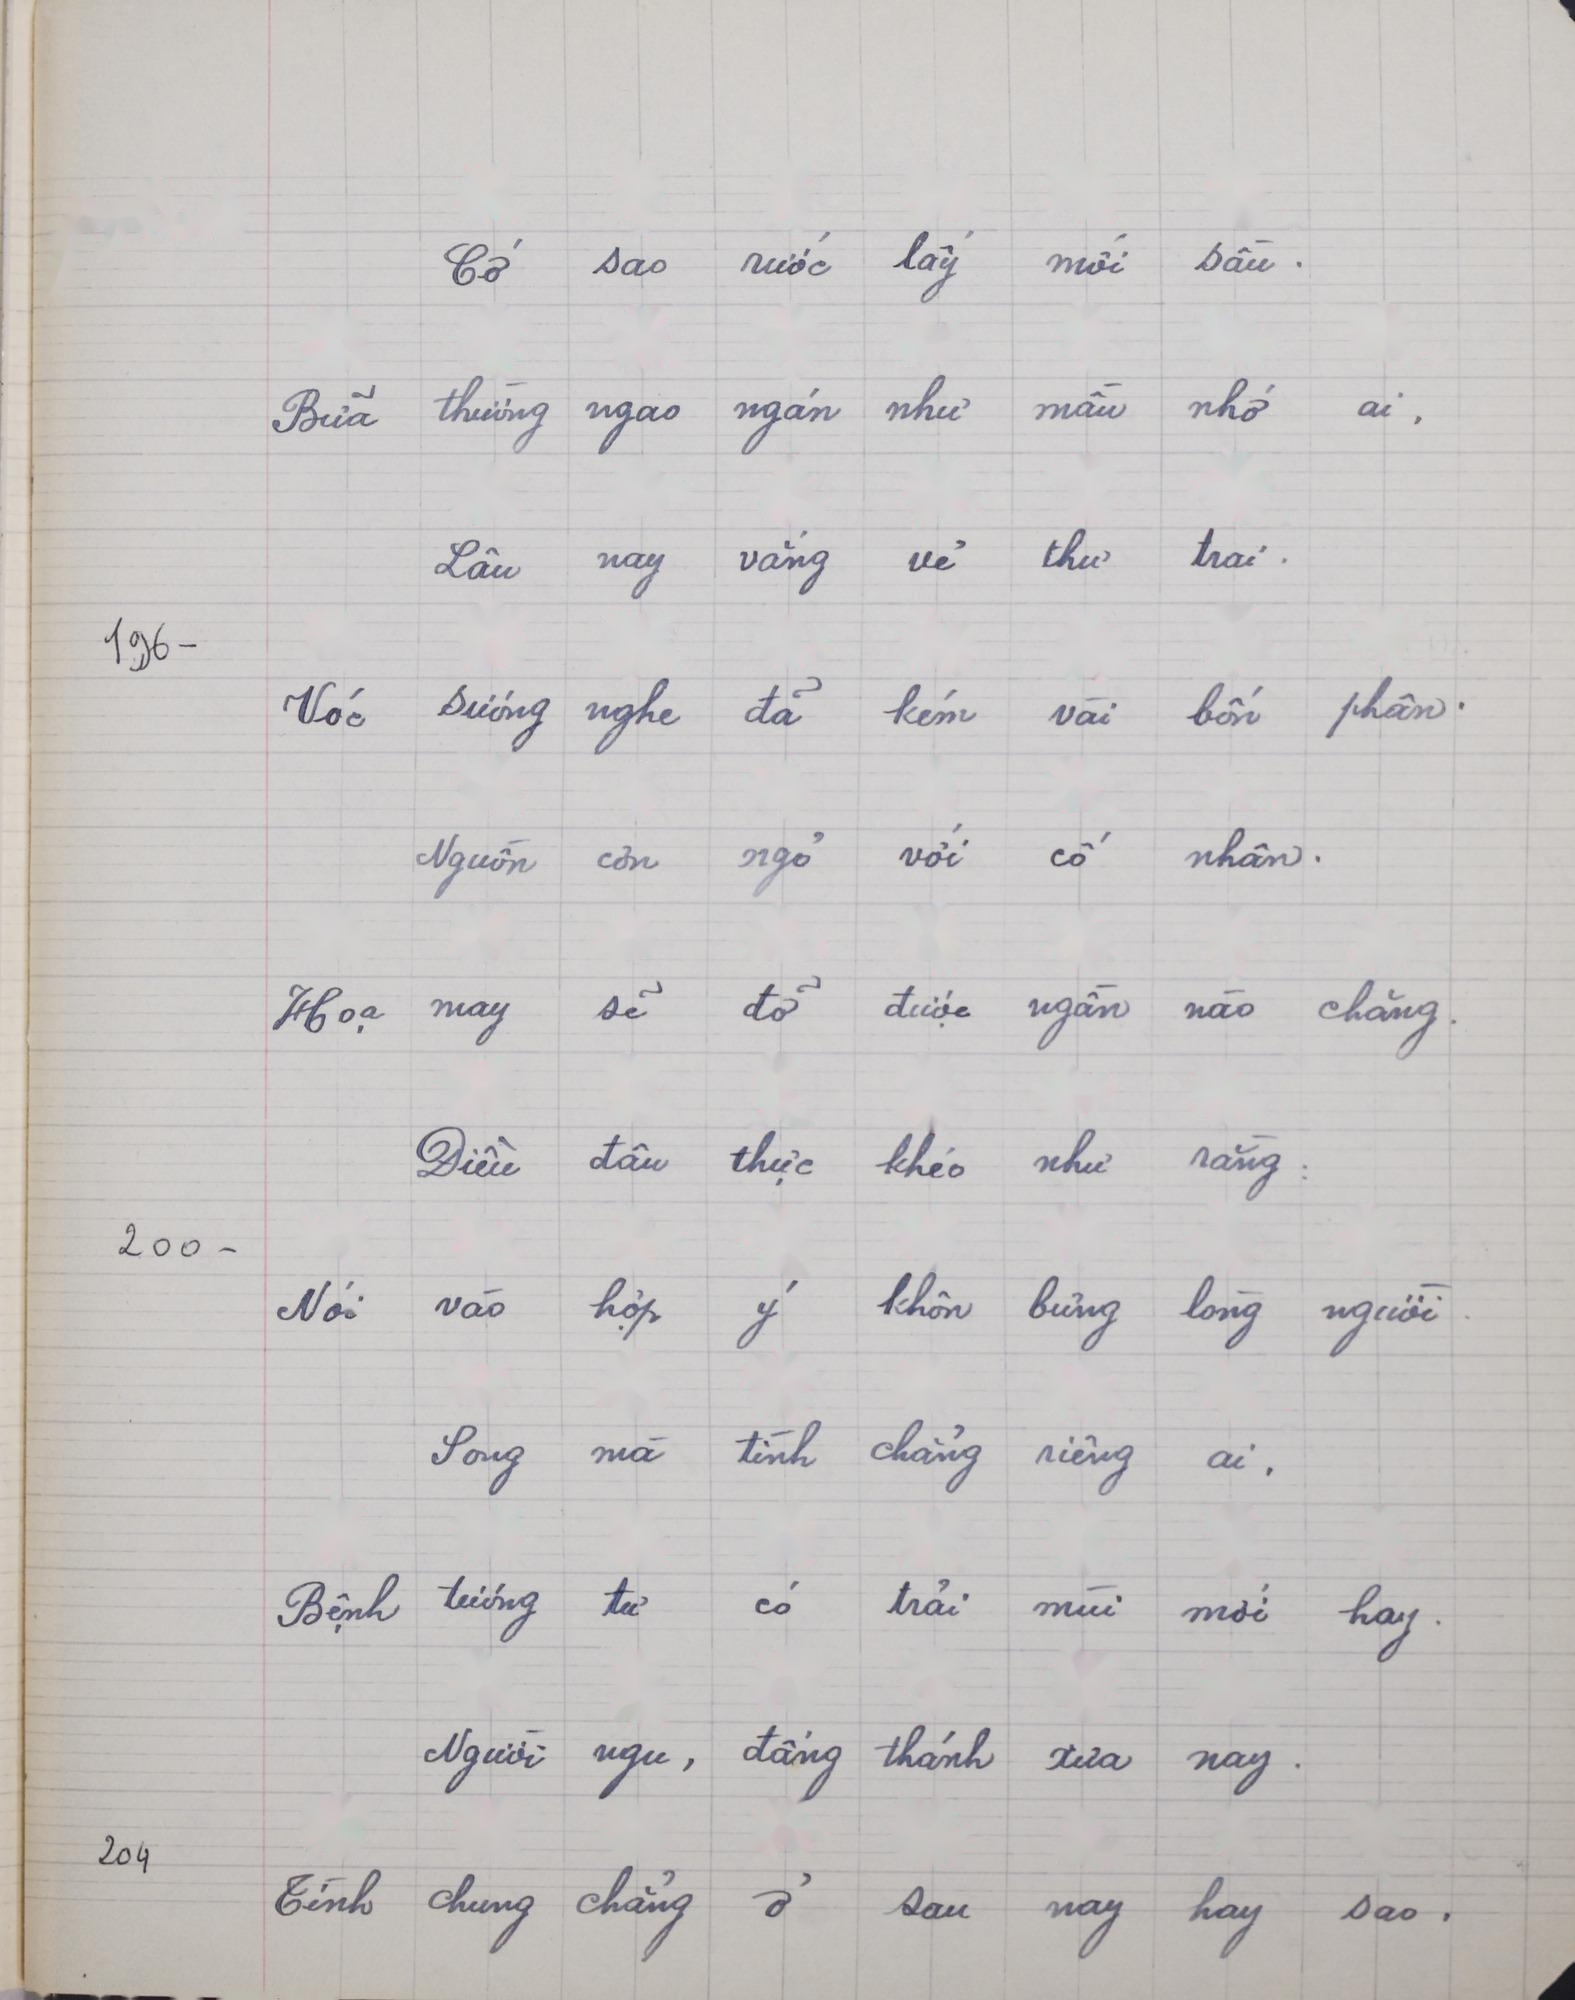 Cớ sao rước lấy mối sầu.
Bữa thường ngao ngán như mầu nhớ ai,
Lâu nay vắng vẻ thư trai.
196-
Vóc sương nghe đã kém vài bốn phân.
Nguồn cơn ngỏ với cố nhân.
Hoạ may sẽ đỡ được ngần nào chăng.
Điều đâu thực khéo như rằng:
200-
Nói vào hợp ý khôn bưng lòng người.
Song mà tình chẳng riêng ai,
Bệnh tương tư có trải mùi mới hay.
Người ngu, đấng thánh xưa nay.
204
Tình chung chẳng ở sau nay hay sao.